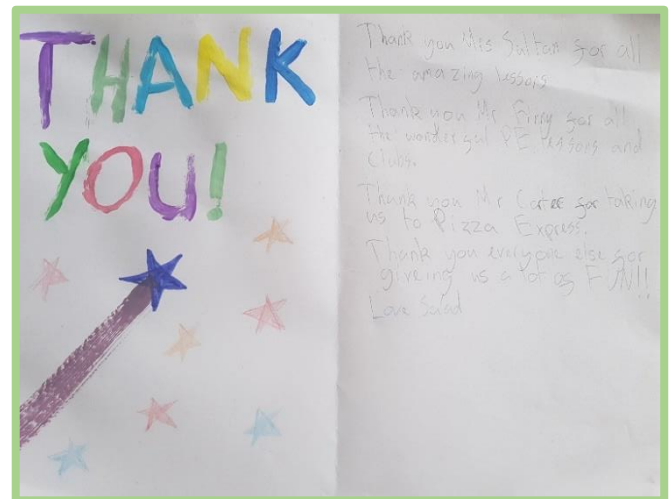 THANK
YOU!
Thank you Mrs Sultan for all
the amazing lessons
Thank you Mr for all
the wonderful PE lessons and
clubs.
Thank you Mr Carter for taking
us to Pizza Express.
Thank you everyone else for
giveing us a lot of FUN!!
Love